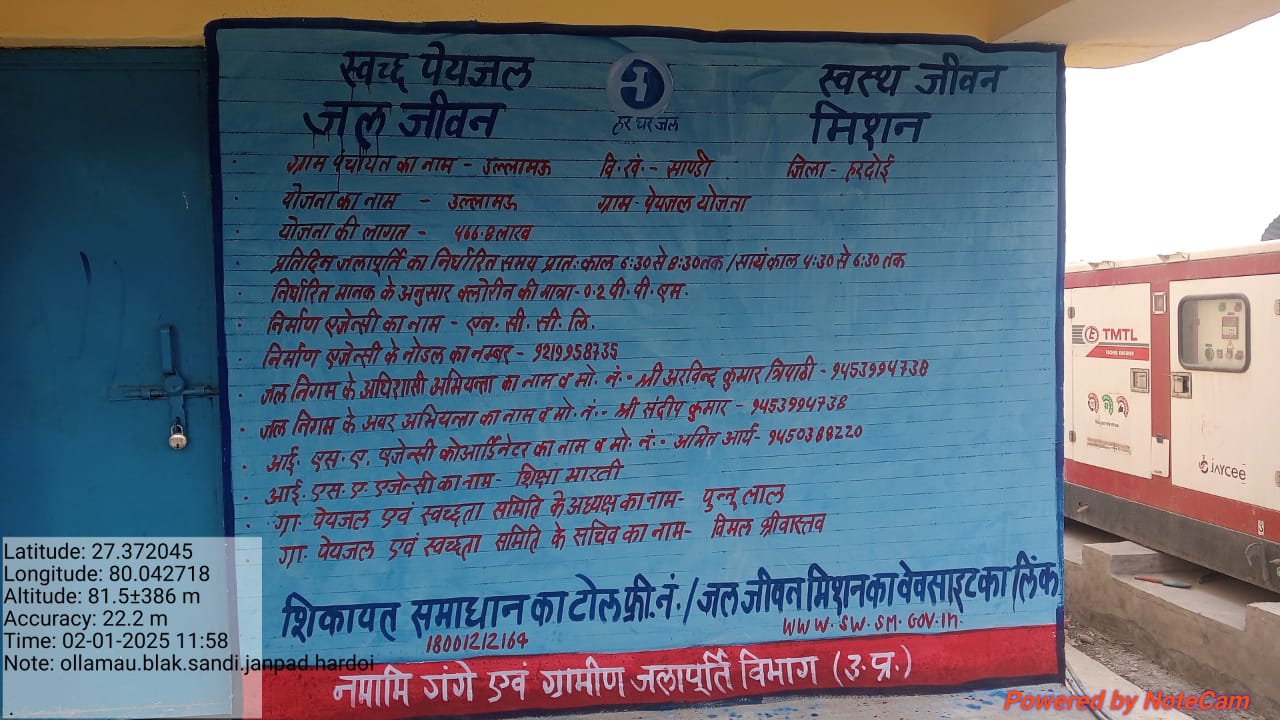 स्वच्छ पेयजल स्वस्थ जीवन
जल जीवन मिशन
हर घर जल
ग्राम पंचायत का नाम - उल्लामऊ वि.खं.- साण्डी जिला - हरदोई
योजना का नाम - उल्लामऊ ग्राम- पेयजल योजना
योजना की लागत - ५६६.८ लाख
प्रतिदिन जलापूर्ति का निर्धारित समय प्रातः काल 6:30 से 8:30 तक / सायं काल 4:30 से 6:30 तक
निर्धारित मानक के अनुसार क्लोरीन की मात्रा - 0.2 पी. पी. एम.
निर्माण एजेन्सी का नाम - एन. सी. सी. लि.
निर्माण एजेन्सी के नोडल का नम्बर - 9219958735
जल निगम के अधिशासी अभियन्ता का नाम व मो. नं.- श्री अरविन्द कुमार त्रिपाठी - 9453994738
जल निगम के अवर अभियन्ता का नाम व मो. नं.- श्री संदीप कुमार - 9453994738
आई. एस. ए. एजेन्सी कोआर्डिनेटर का नाम व मो. नं.- अमित आर्य- 9450388220
आई. एस. ए. एजेन्सी का नाम- शिक्षा भारती
गा. पेयजल एवं स्वच्छता समिति के अध्यक्ष का नाम- पुन्नू लाल
गा. पेयजल एवं स्वच्छता समिति के सचिव का नाम- विमल श्रीवास्तव
शिकायत समाधान का टोल फ्री. नं. / जल जीवन मिशन का वेबसाइट का लिंक
18001212164 WWW.SWSM.GOV.In.
नमामि गंगे एवं ग्रामीण जलापूर्ति विभाग (उ.प्र.)
TMTL
JAYCEE
Latitude: 27.372045
Longitude: 80.042718
Altitude: 81.5±386 m
Accuracy: 22.2 m
Time: 02-01-2025 11:58
Note: ollamau.blak.sandi.janpad.hardoi
Powered by NoteCam